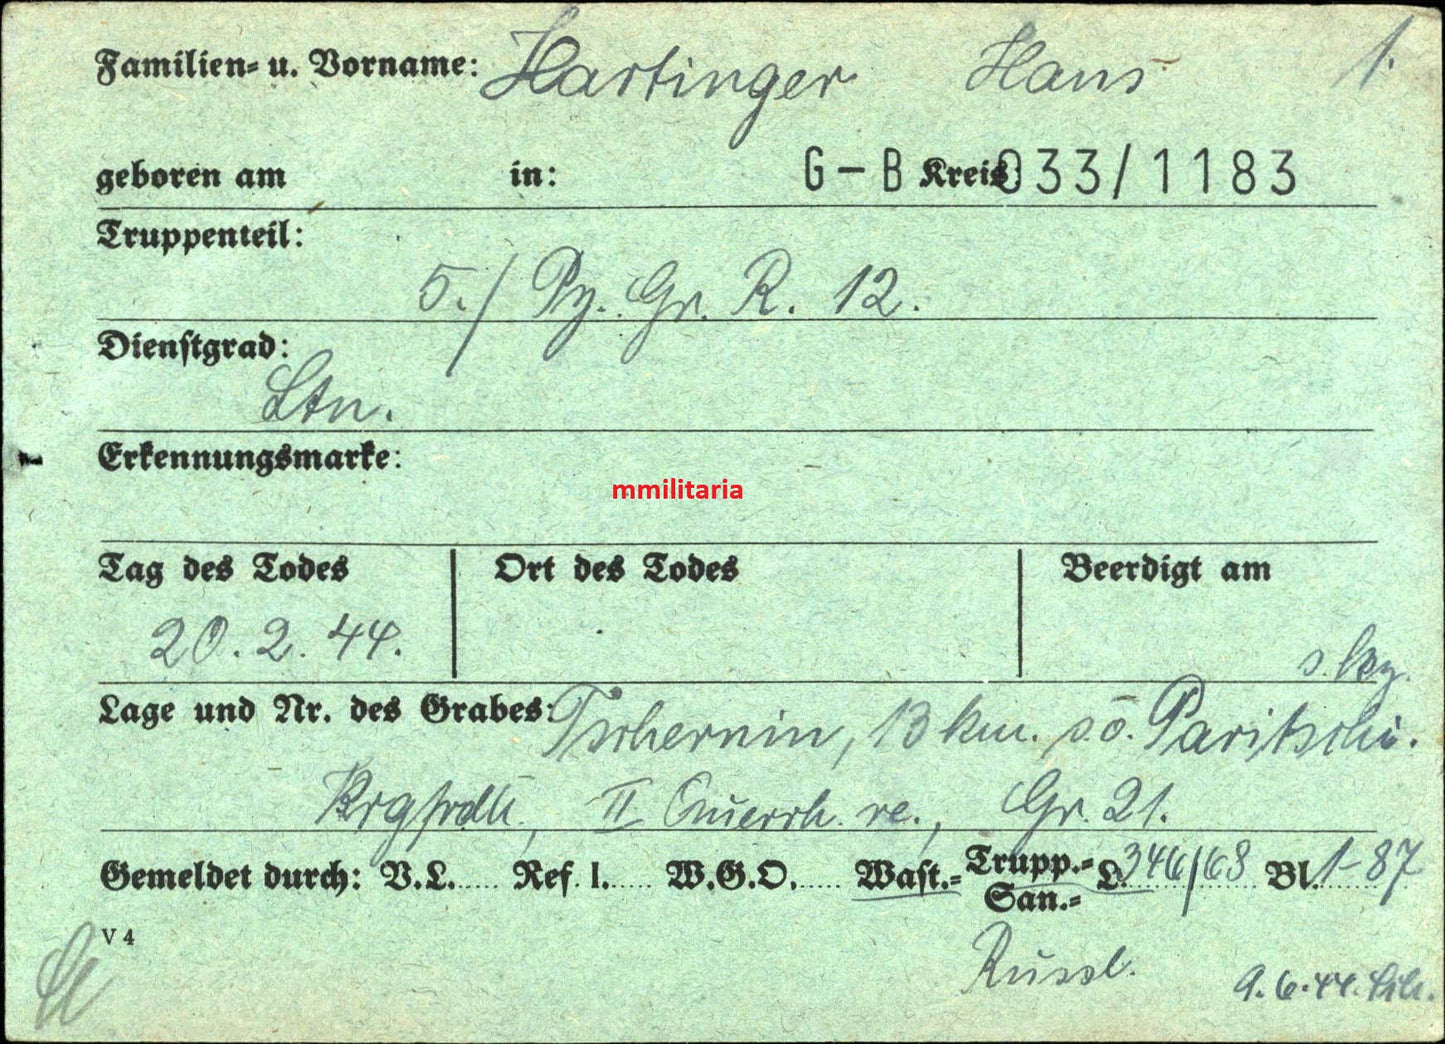 Familien- u. Vorname: Hartinger Hans 1.
geboren am in: G-B Kreis 033/1183
Truppenteil:
5./ Pz. Gr. R. 12.
Dienstgrad:
Ltn.
Erkennungsmarke:
mmilitaria
Tag des Todes Ort des Todes Beerdigt am
20. 2. 44.
Lage und Nr. des Grabes: Tschernin, 13 km. sö. Paritschi.
II Gr. 21.
Gemeldet durch: V.L..... Ref. 1..... W.G.O..... Wast.= Trupp.= L. 346/63 Bl. 1-87
San.=
V 4
Russl.
9. 6. 44.